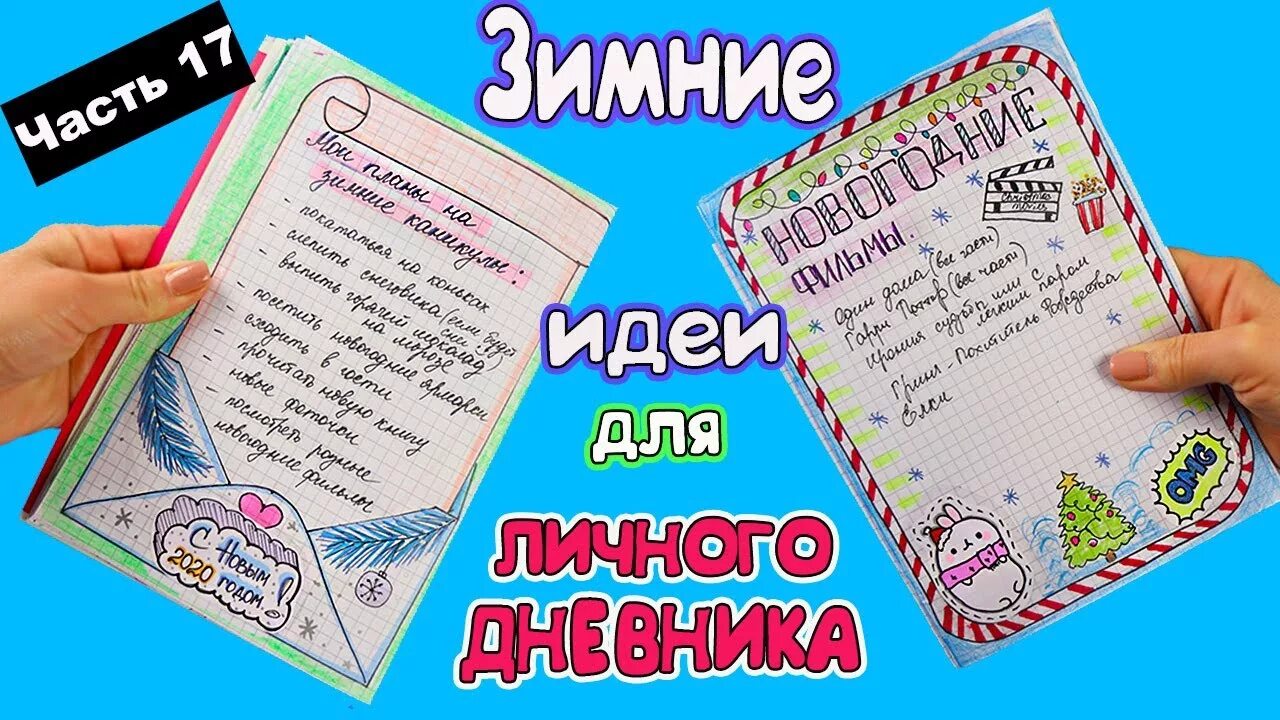 Часть 17
Зимние
идеи
для
личного
дневника
Мои планы на
зимние каникулы:
- покататься на коньках
- слепить снеговика (если будет
снег)
- выпить горячий шоколад
на морозе
- посетить новогодние ярмарки
- сходить в гости
- прочитать новую книгу
- новые фоточки
- посмотреть разные
новогодние фильмы
С Новым
2020 годом!
НОВОГОДНИЕ
ФИЛЬМЫ:
Christmas
movies
Один дома (все части)
Гарри Поттер (все части)
Ирония судьбы или с
легким паром
Гринч - Похититель Рождества
Ёлки
OMG